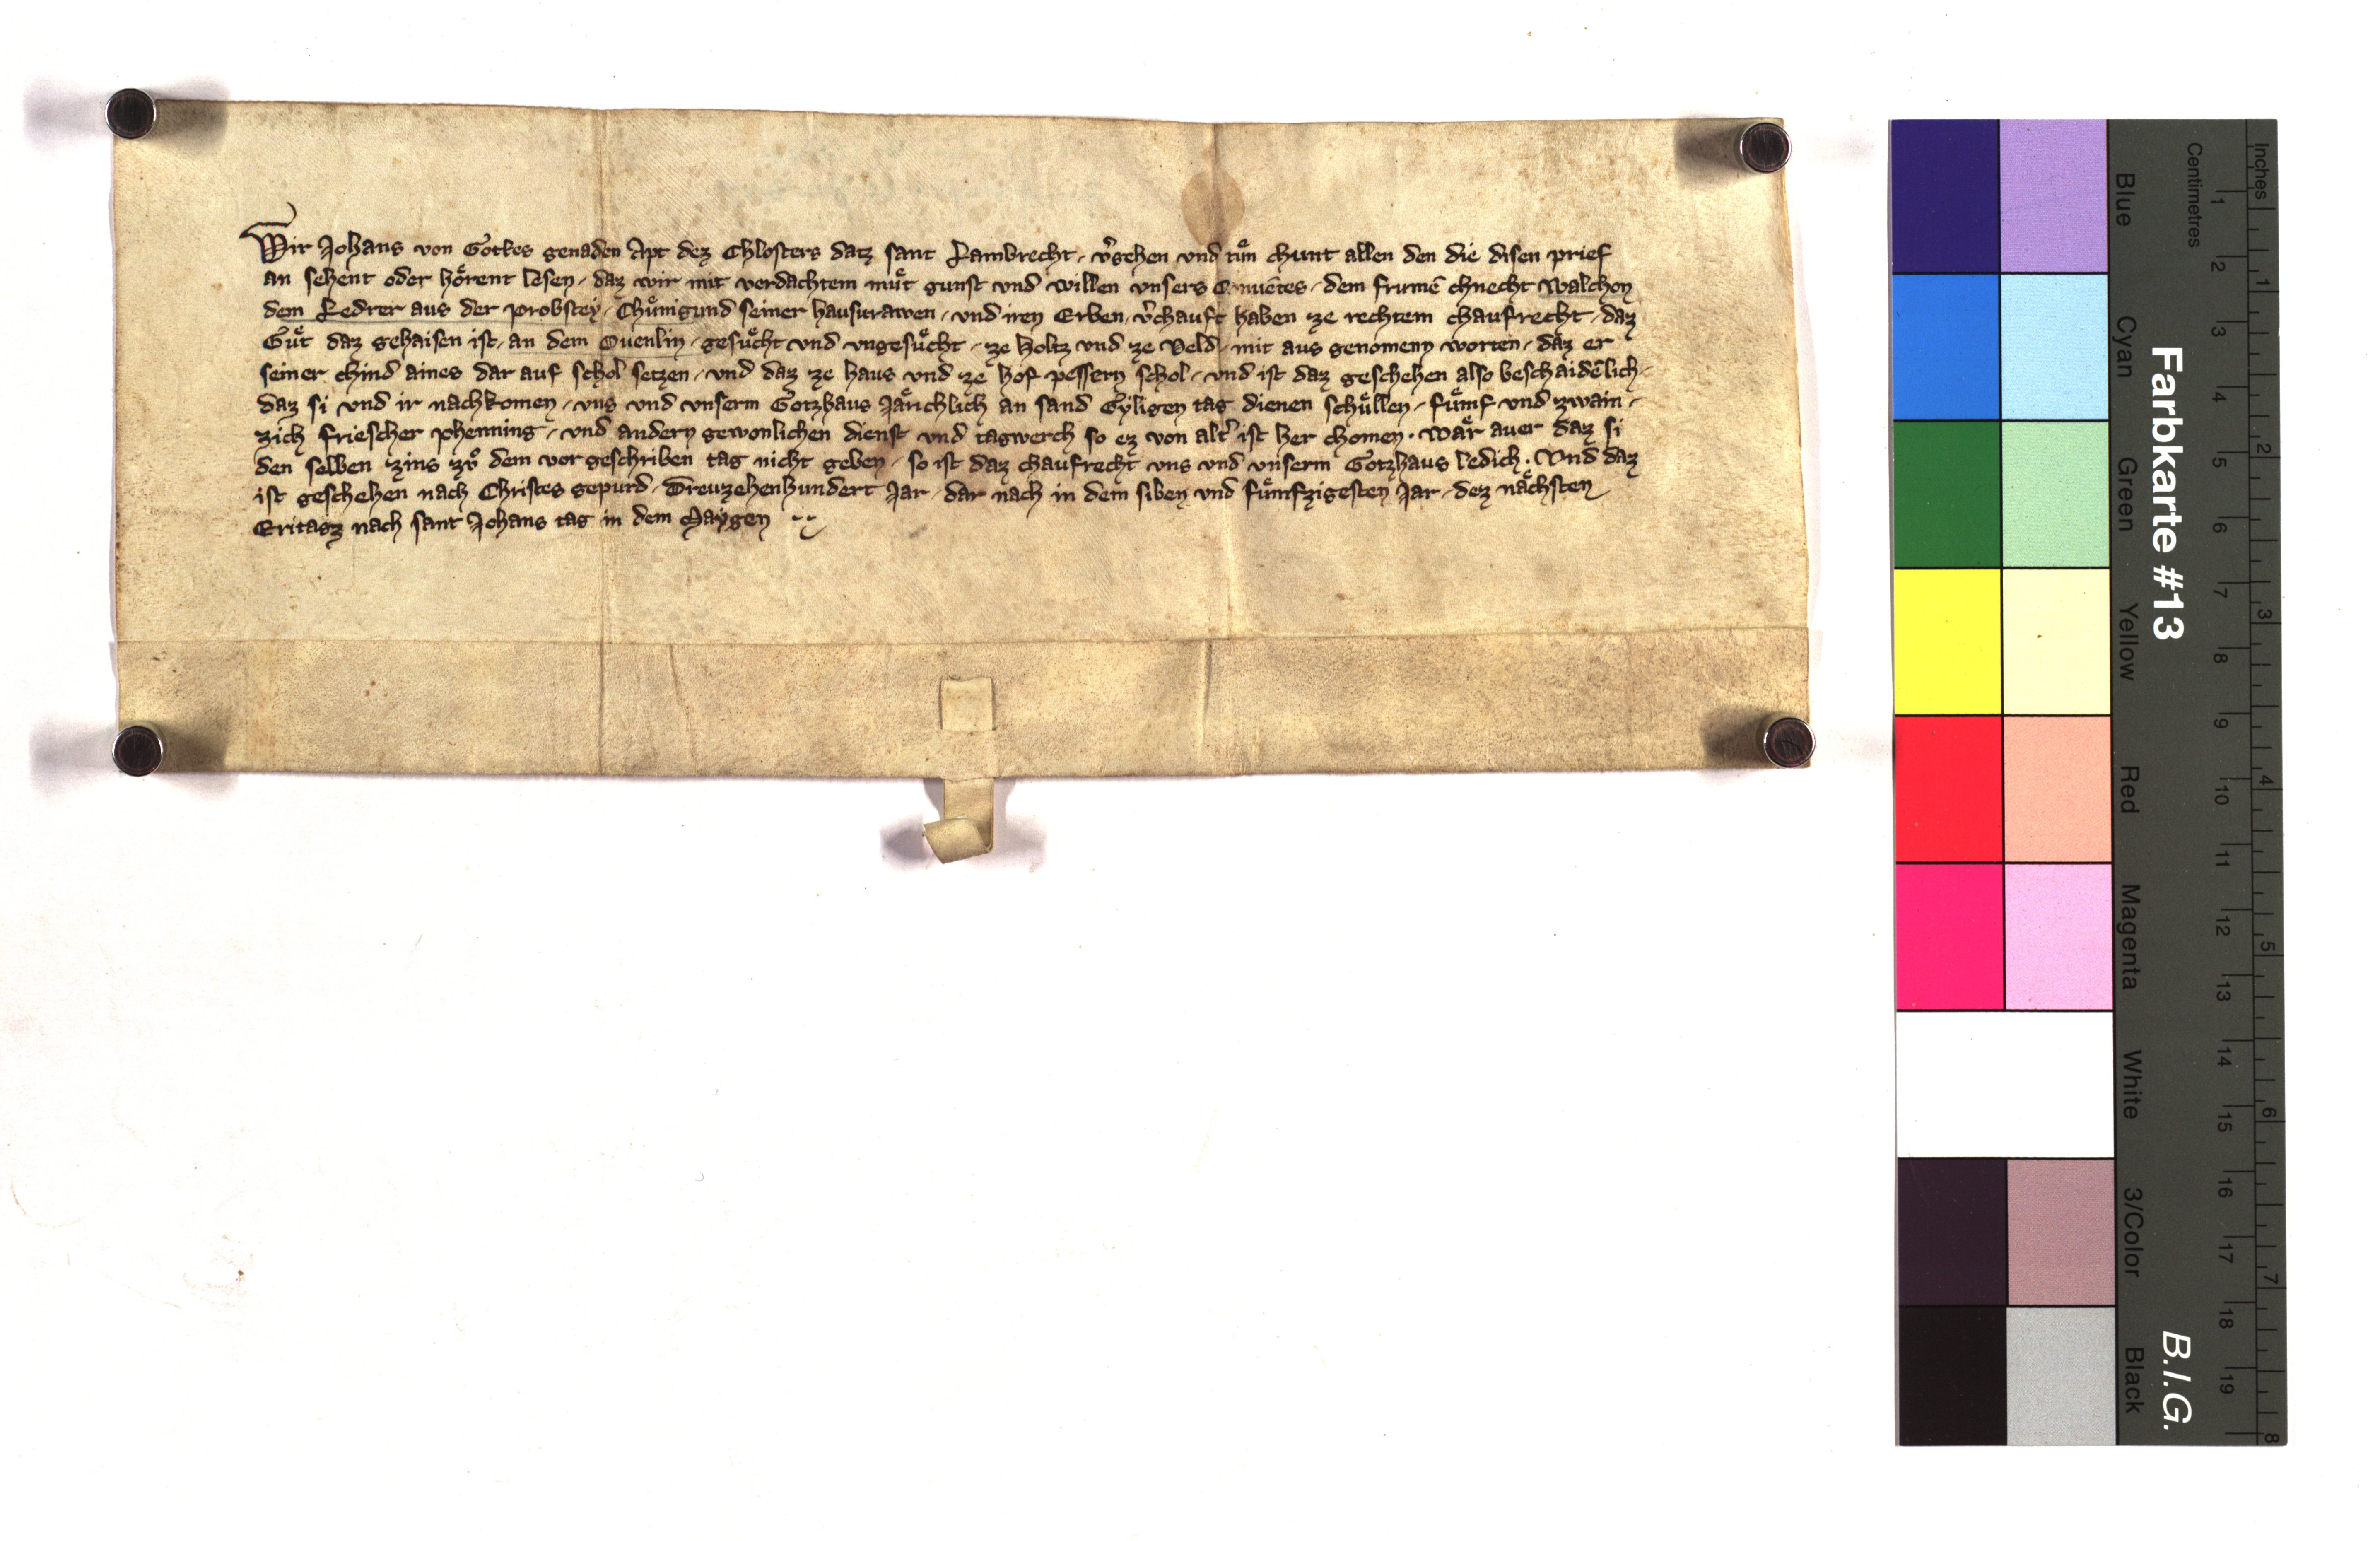 Wir Johans von Gottes genaden Apt dez Chlosters datz sant Lambrecht / v̾gehen vnd tuͤn chunt allen den die disen prief
an sehent oder hoͤrent lesen / daz wir mit verdachtem muͤt gunst vnd willen vnsers Conuētes / dem frumē chnecht Walchon
dem Ledrer aus der probstey / Chuͤnigund seiner hausurawen / vnd iren Erben / v̾chauft haben ze rechtem chaufrecht / daz
Guͤt daz gehaisen ist / an dem Ouenlin / gesuͤcht vnd vngesuͤcht / ze holtz vnd ze Veld / mit aus genomenn worten / daz er
seiner chind aines dar auf schol setzen / vnd daz ze haus vnd ze hof pessern schol / vnd ist daz geschehen also beschaidēlich /
daz si vnd ir nachkomen / vns vnd vnserm Gotzhaus Jaͤrichlich an sand Gyligen tag dienen schuͤllen / fuͤmf vnd zwain /
zich friescher phenning / vnd andern gewonlichen dienst vnd tagwerch so ez von alt̾ ist her chomen . Waͤr auer daz si
den selben zins zuͦ dem vor geschriben tag nicht geben / so ist daz chaufrecht vns vnd vnserm Gotzhaus ledich . Vnd daz
ist geschehen nach Christes gepurd / Dreuzehenhundert Jar / dar nach in dem siben vnd fuͤmfzigesten Jar / dez naͤchsten
Eritagz nach sant Johans tag in dem Maygen
Inches
Centimetres
1 2 3 4 5 6 7 8
1 2 3 4 5 6 7 8 9 10 11 12 13 14 15 16 17 18 19
Farbkarte #13
B.I.G.
Blue
Cyan
Green
Yellow
Red
Magenta
White
3/Color
Black